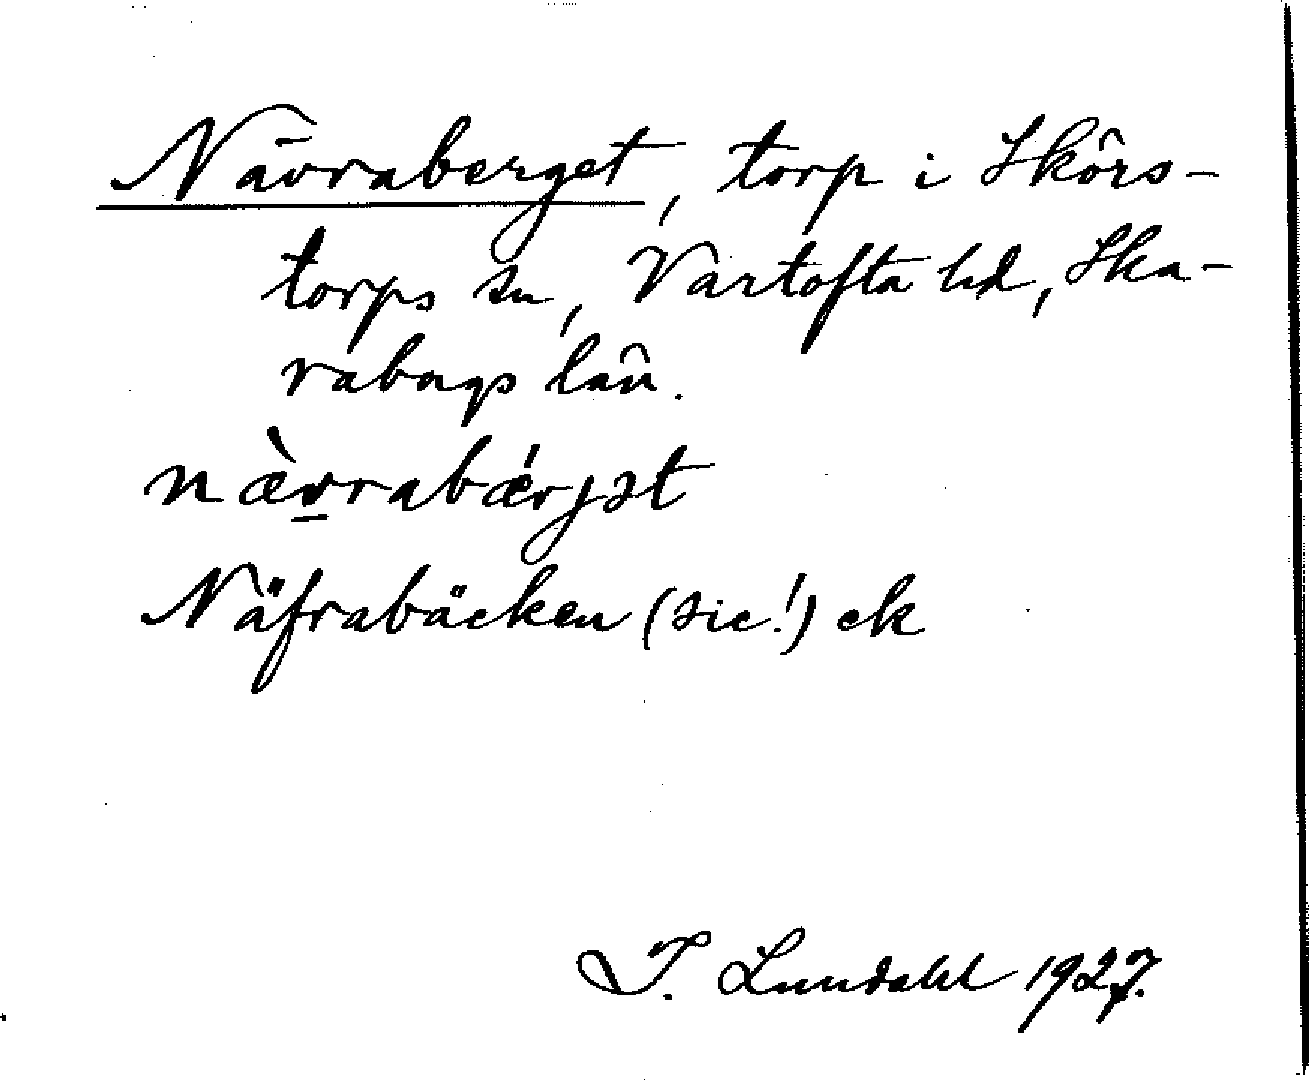 Nävraberget, torp i Skörs-
torps sn, Vartofta hd, Ska-
raborgs län.
næ̀v̲rabǽrjət
Näfrabäcken (sic!) ek
I. Lundahl 1927.